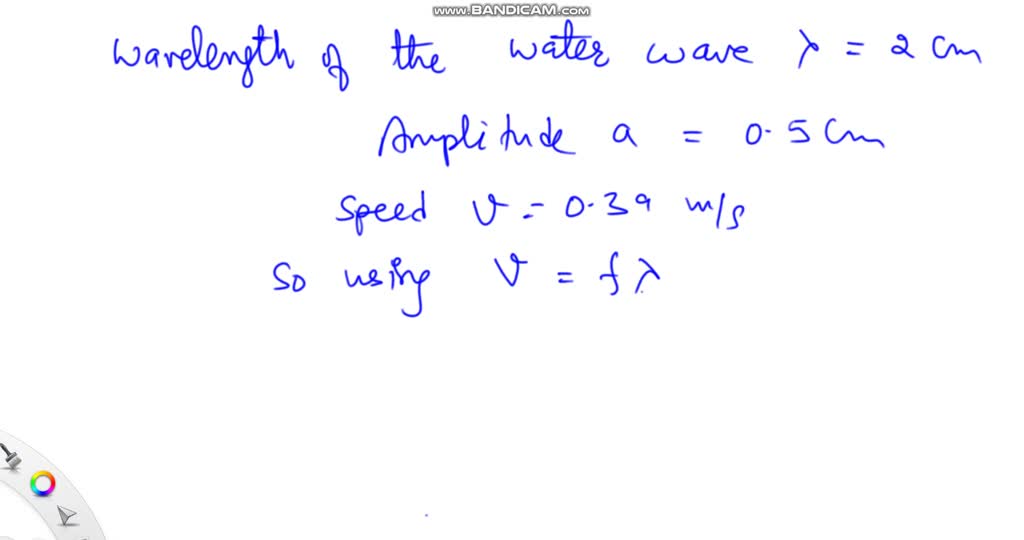 www.BANDICAM.com
Wavelength of the water wave λ = 2 cm
Amplitude a = 0.5 cm
Speed v = 0.39 m/s
So using v = fλ